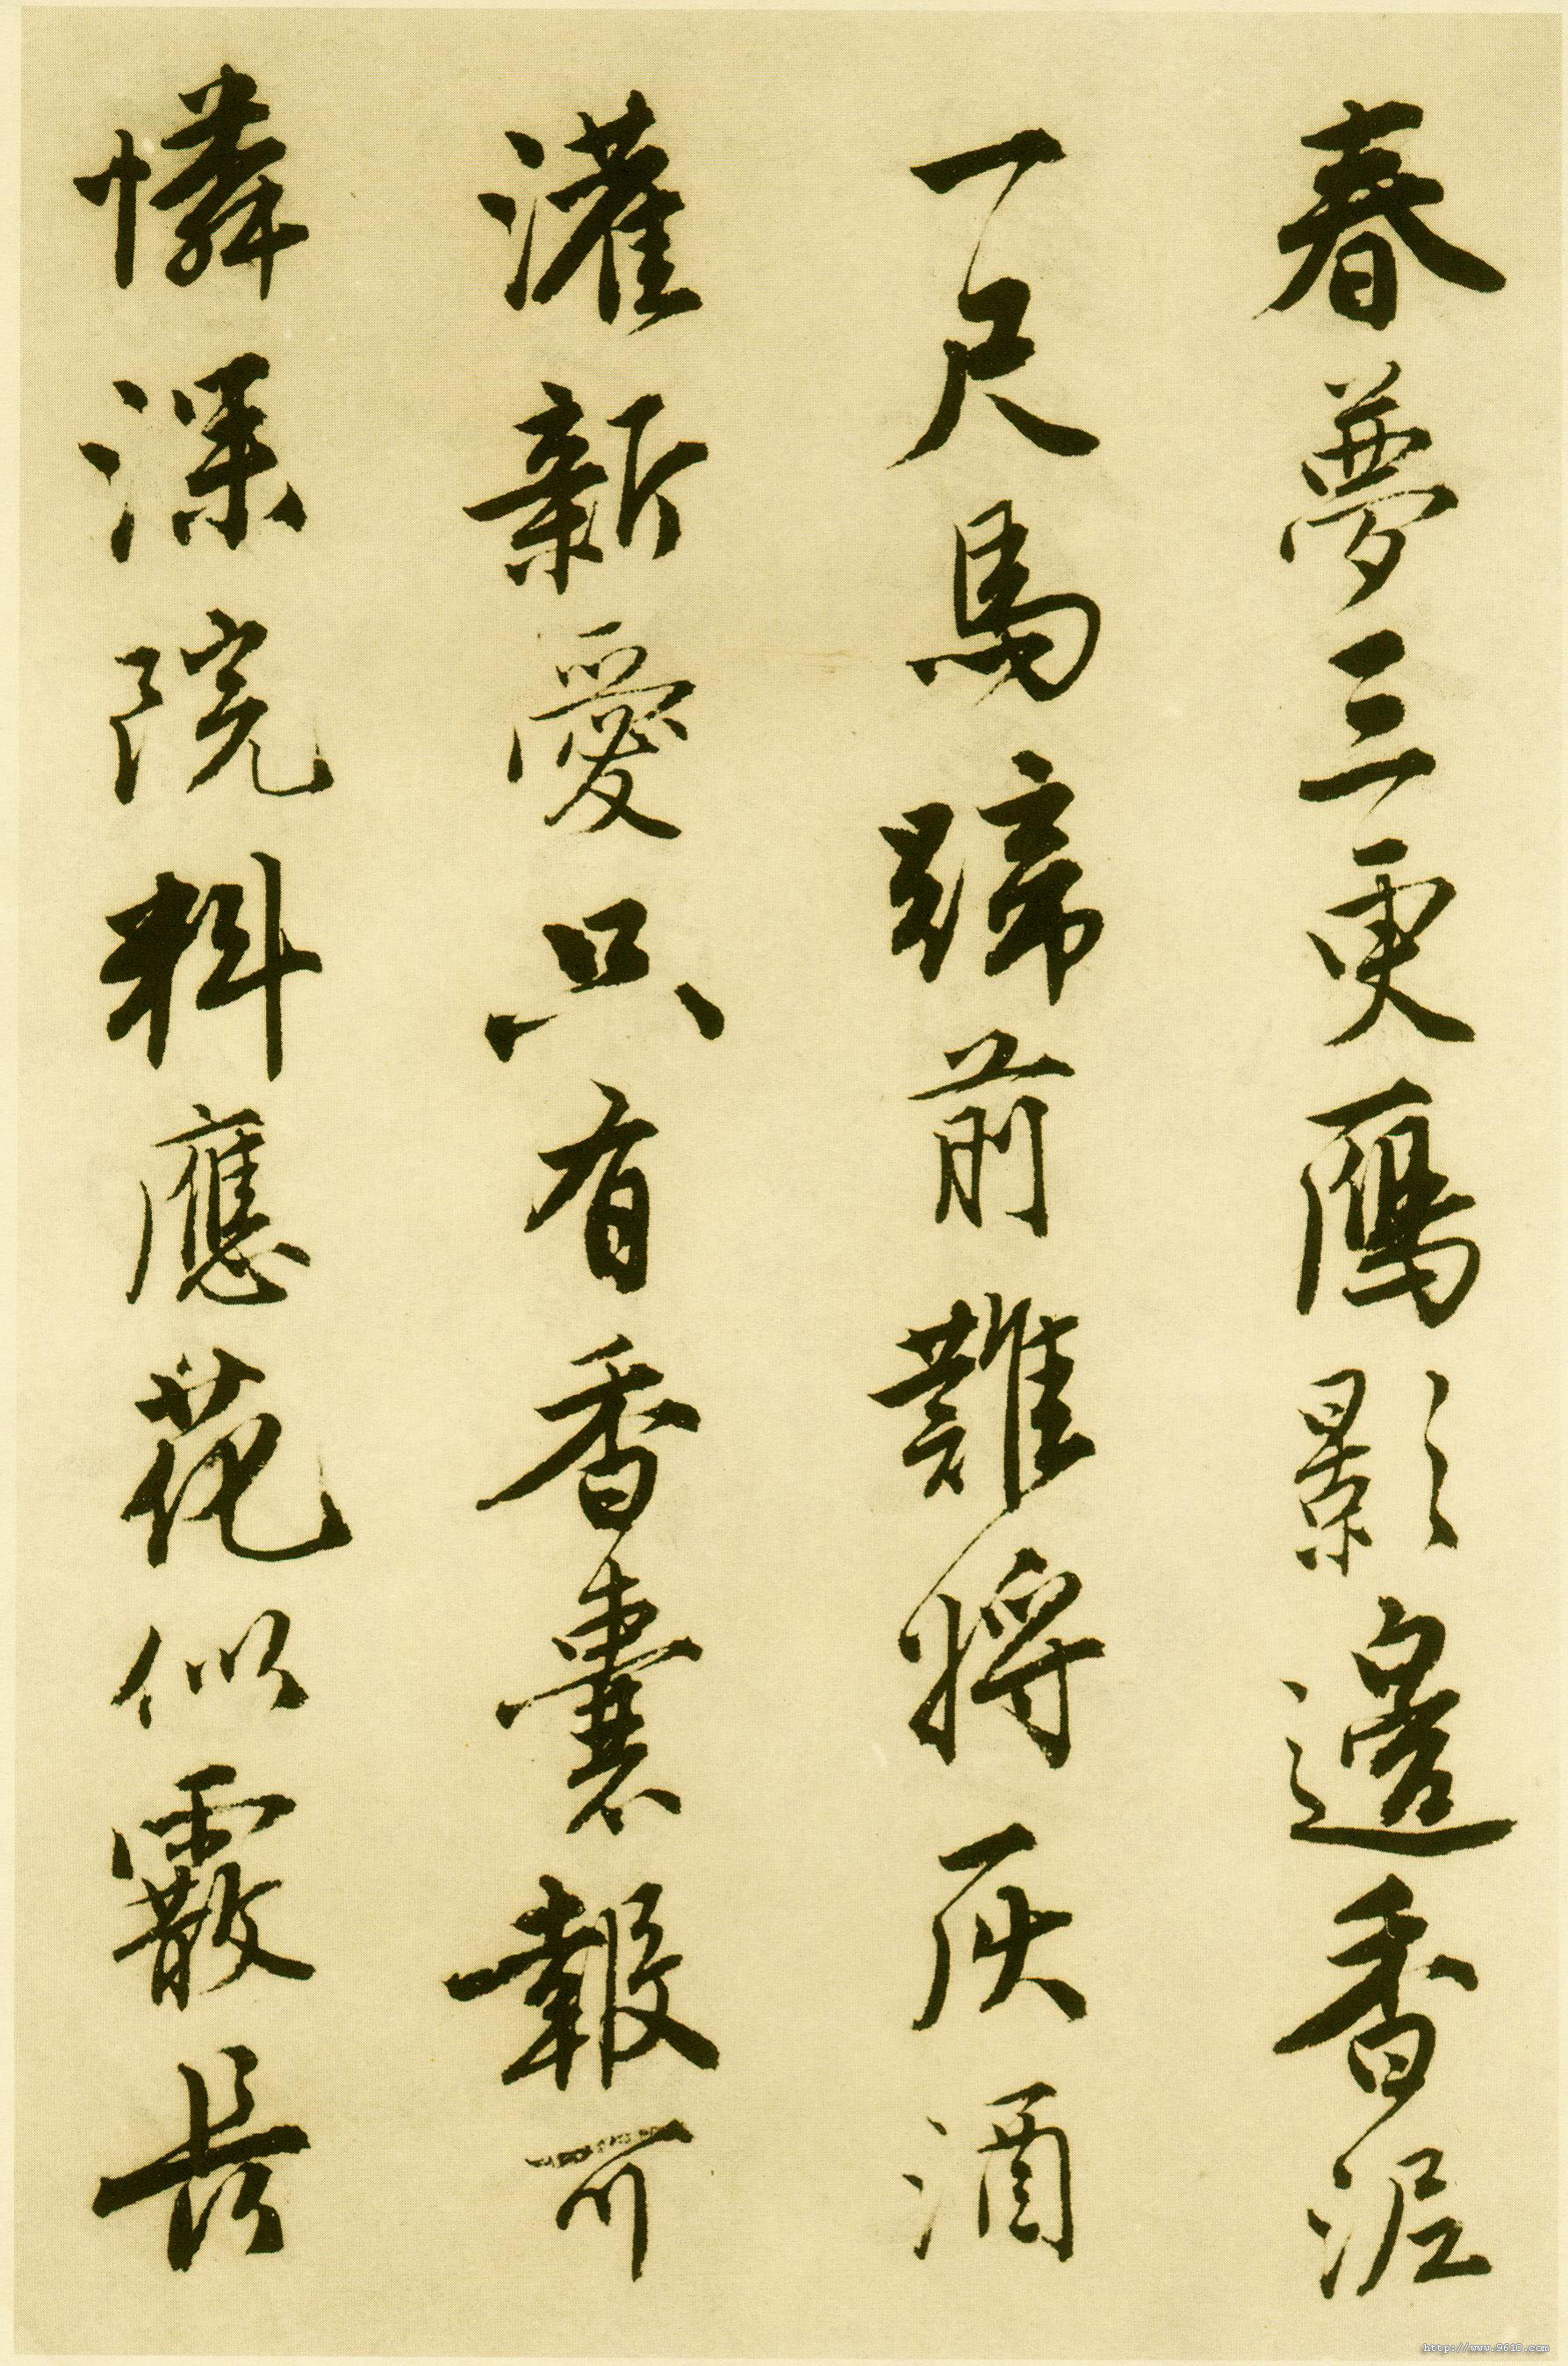 春夢三更鴈影邊香泥
一尺馬蹄前難將灰酒
灌新愛只有香囊報可
憐深院料應花似霰長
http://www.9610.com